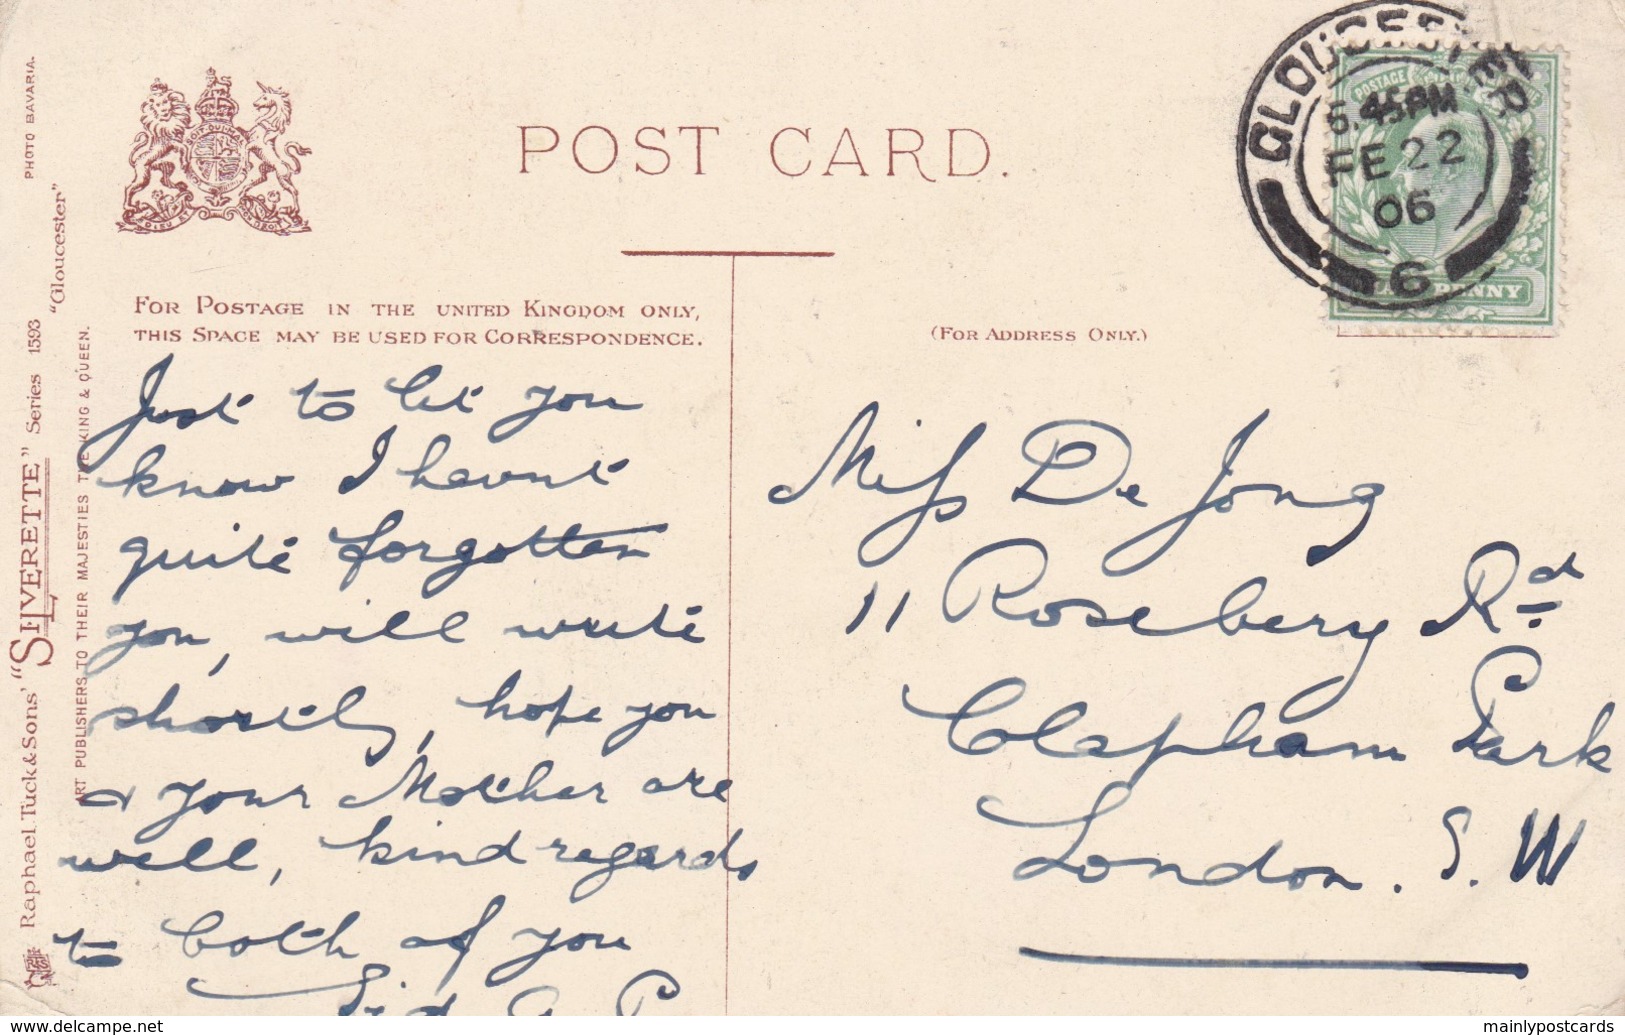 POST CARD.
FOR POSTAGE IN THE UNITED KINGDOM ONLY,
THIS SPACE MAY BE USED FOR CORRESPONDENCE.
(FOR ADDRESS ONLY.)
GLOUCESTER
6.45PM
FE 22
06
6
POSTAGE
PENNY
PHOTO BAVARIA.
Raphael Tuck & Sons' "SILVERETTE" Series 1593 "Gloucester"
ART PUBLISHERS TO THEIR MAJESTIES THE KING & QUEEN.
Just to let you
know I havnt
quite forgotten
you, will write
shortly, hope you
& your Mother are
well, kind regards
to both of you
Sid
Miss De Jong
11 Rosebery Rd
Clapham Park
London. S. W
delcampe.net
mainlypostcards